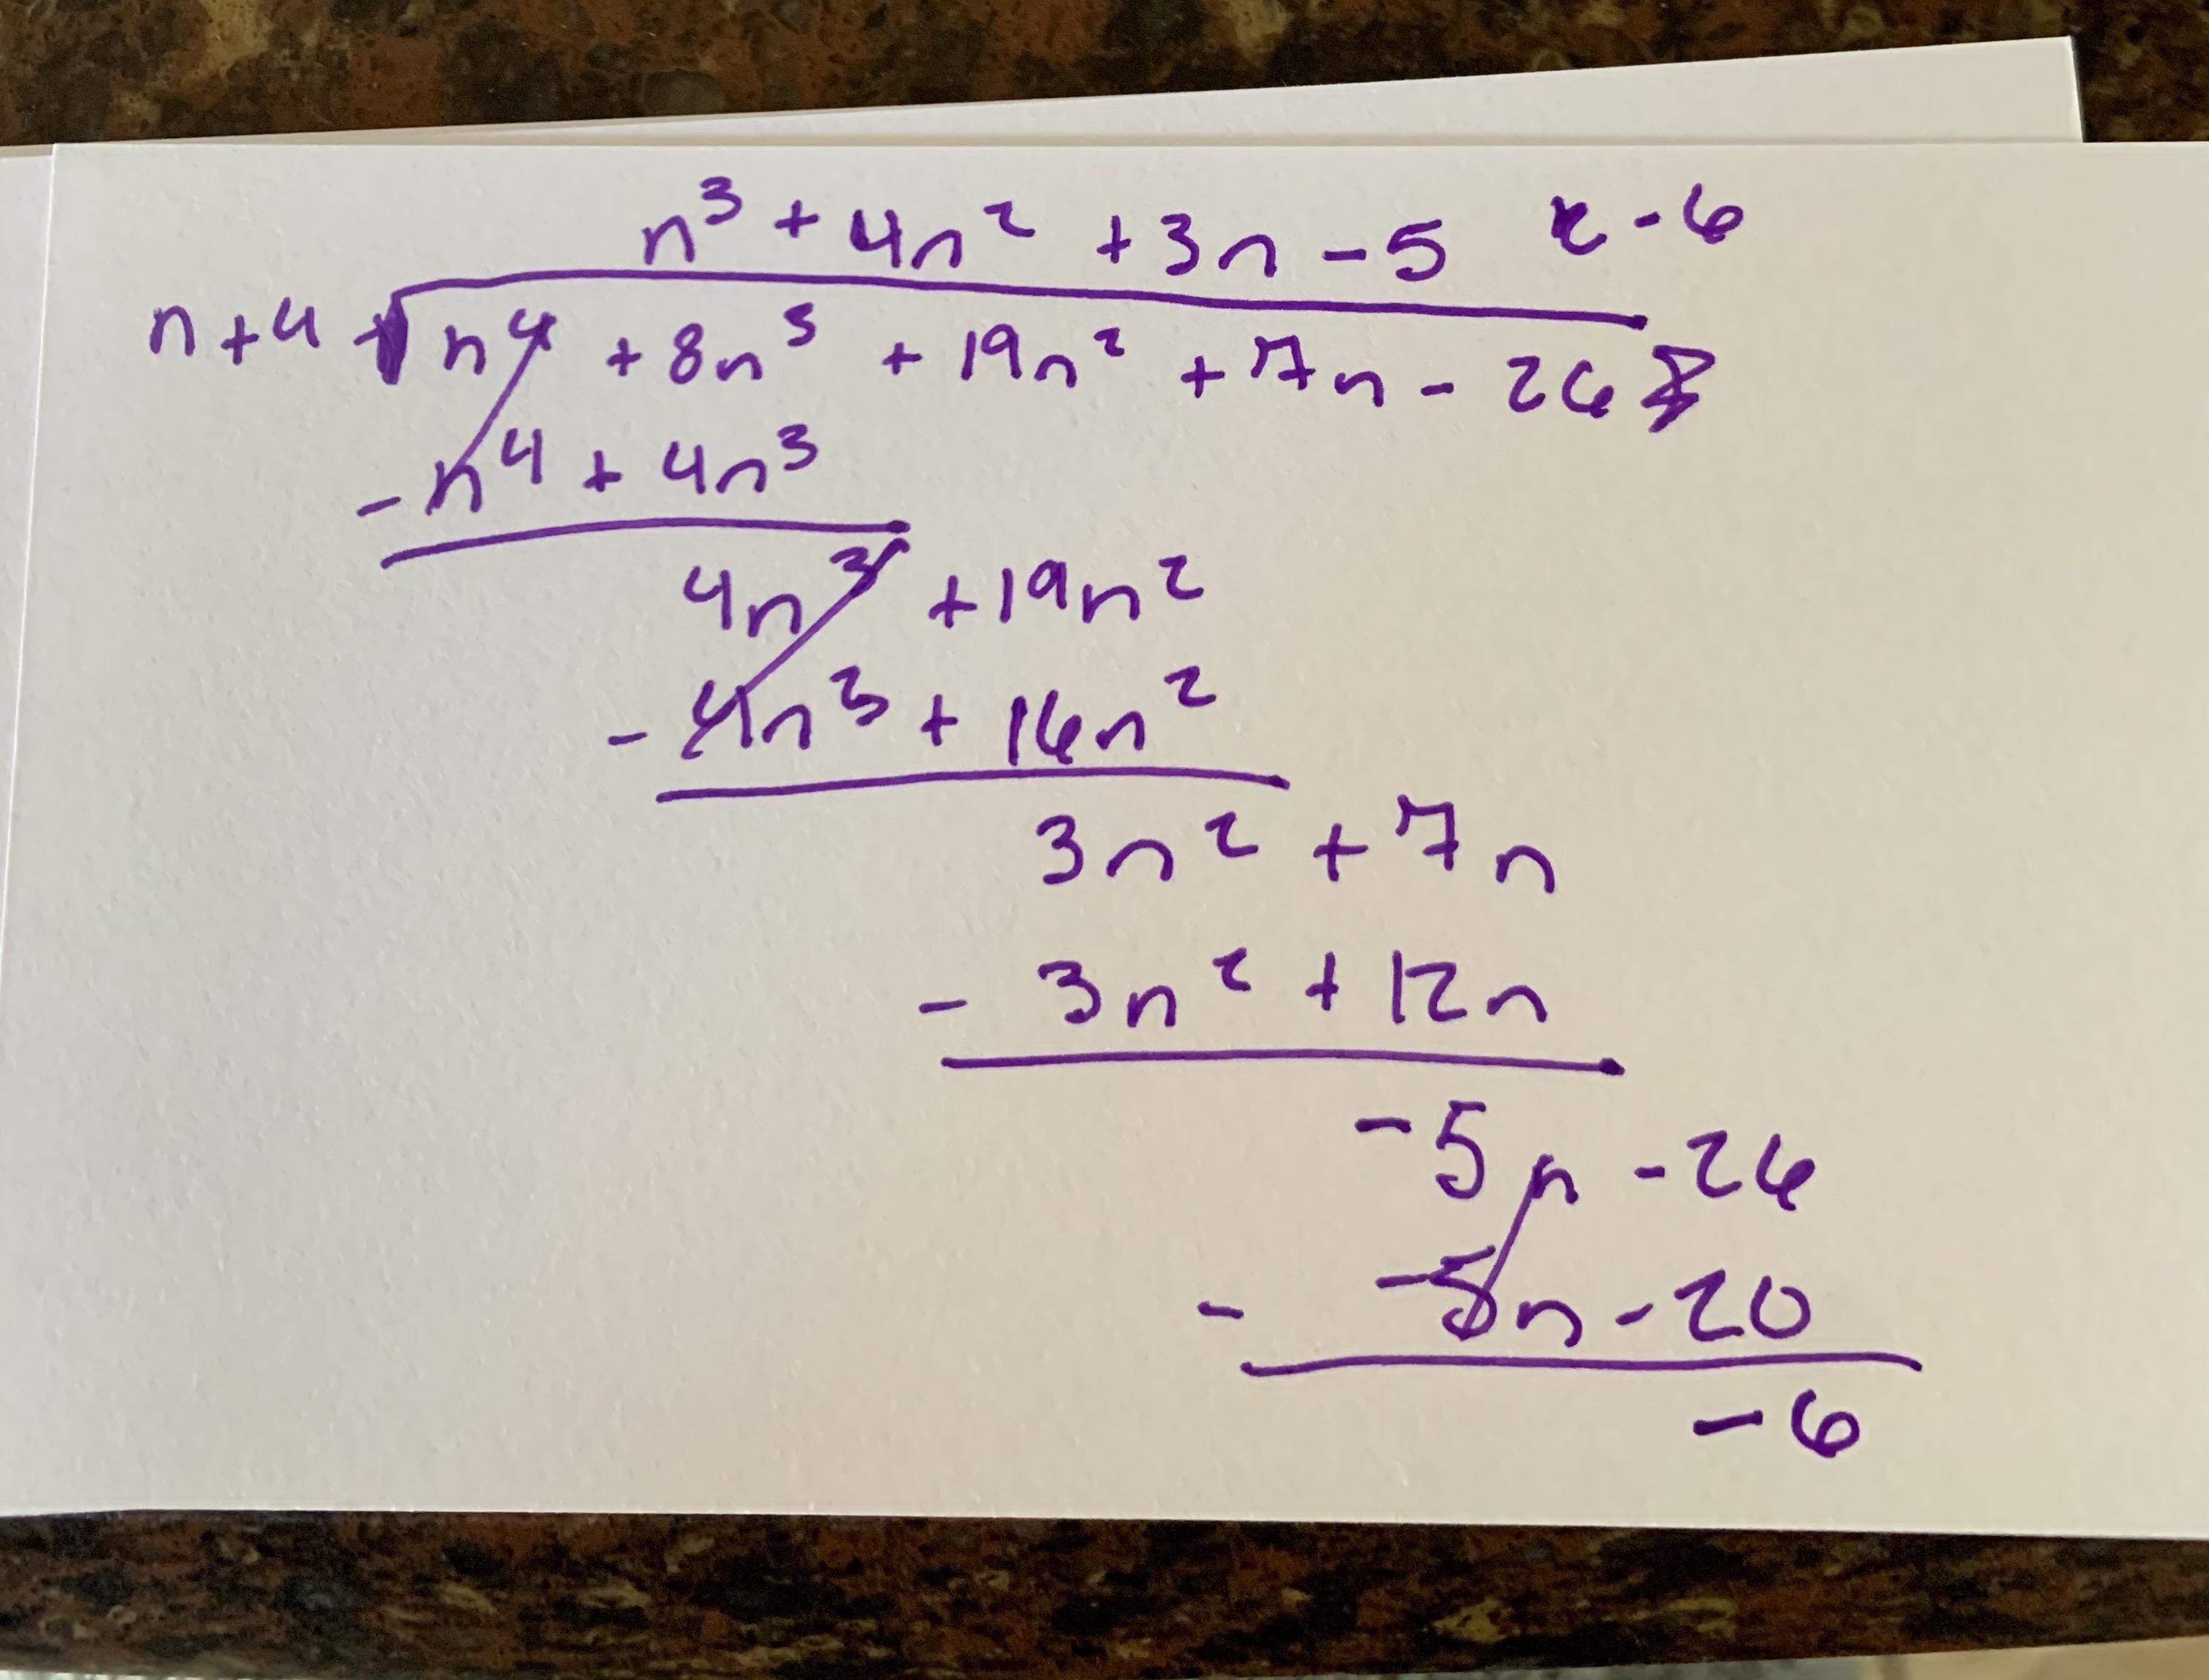 n³ + 4n² + 3n - 5 r - 6
n + 4 √ n⁴ + 8n³ + 19n² + 7n - 26
- n⁴ + 4n³
4n³ + 19n²
- 4n³ + 16n²
3n² + 7n
- 3n² + 12n
-5n - 26
- -5n - 20
-6